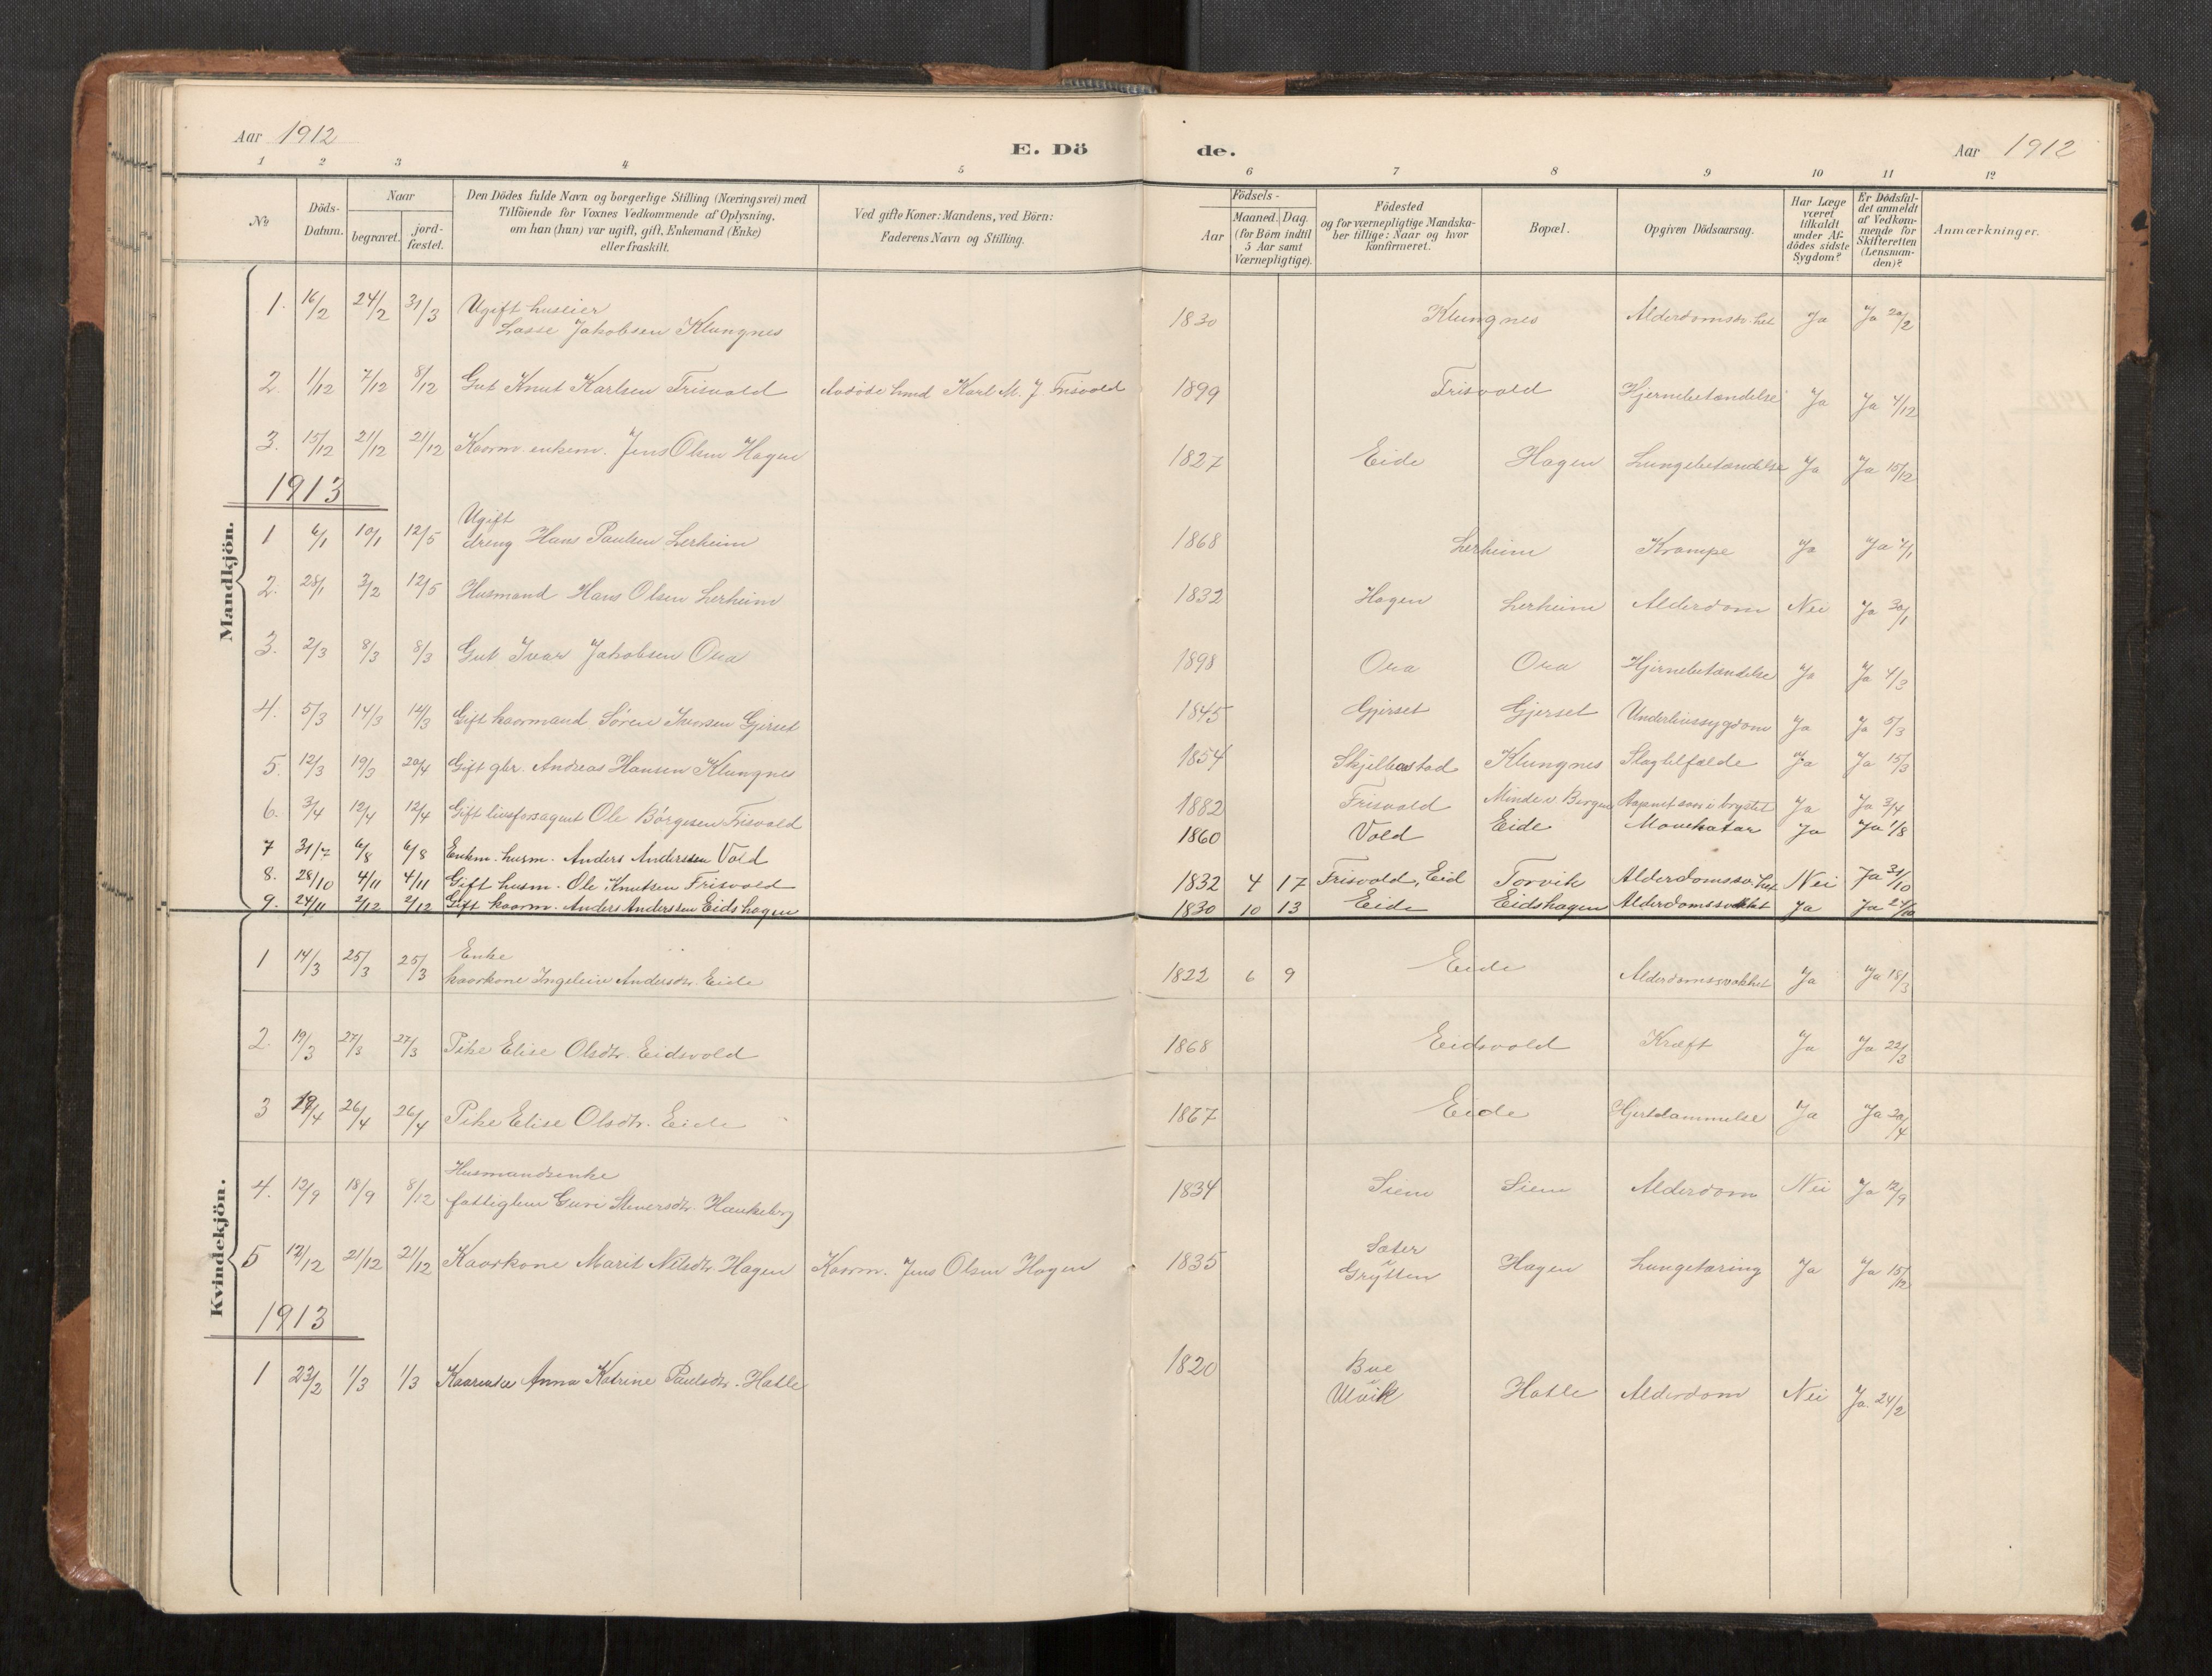 Aar 1912
E. Dö
de.
Aar 1912
1 2 3 4 5 6 7 8 9 10 11 12
No
Döds-Datum.
Naar
begravet. jord-fæstet.
Den Dödes fulde Navn og borgerlige Stilling (Næringsvei) med
Tilföiende for Voxnes Vedkommende af Oplysning,
om han (hun) var ugift, gift, Enkemand (Enke)
eller fraskilt.
Ved gifte Koner: Mandens, ved Börn:
Faderens Navn og Stilling.
Födsels-
Aar
Maaned. Dag.
(for Börn indtil
5 Aar samt
Værnepligtige).
Födested
og for værnepligtige Mandska-
ber tillige: Naar og hvor
konfirmeret.
Bopæl.
Opgiven Dödsaarsag.
Har Læge
været
tilkaldt
under Af-
dödes sidste
Sygdom?
Er Dödsfal-
det anmeldt
af Vedkom-
mende for
Skifteretten
(Lensman-
den)?
Anmærkninger.
Mandkjön.
1. 16/2 24/2 31/3 Ugift huseier
Lasse Jakobsen Klungnes 1830 Klungnes Alderdomssv.het Ja Ja 20/2
2. 1/12 7/12 8/12 Gut Knut Karlsen Frisvold Avdöde Karl M. J. Frisvold 1899 Frisvold Hjernebetændelse Ja Ja 4/12
3. 15/12 21/12 21/12 Kaarm. enkem. Jens Olsen Hagen 1827 Eide Hagen Lungebetændelse Ja Ja 15/12
1913
1 6/1 10/1 12/5 Ugift
dreng Hans Paulsen Lerheim 1868 Lerheim Krampe Ja Ja 7/1
2. 28/1 3/2 12/5 Husmand Hans Olsen Lerheim 1832 Hagen Lerheim Alderdom Nei Ja 30/1
3. 2/3 8/3 8/3 Gut Ivar Jakobsen Ora 1898 Ora Ora Hjernebetændelse Ja Ja 4/3
4. 5/3 14/3 14/3 Gift kaarmand Sören Iversen Gjerset 1845 Gjerset Gjerset Underlivssygdom Ja Ja 5/3
5. 12/3 19/3 20/4 Gift gbr. Andreas Hansen Klungnes 1854 Skjelbostad Klungnes Slagtilfælde Ja Ja 15/3
6. 3/4 12/4 12/4 Gift livsforsagent Ole Börgesen Frisvold 1882 Frisvold Minde v. Bergen i brystet Ja Ja 3/4
7 31/7 6/8 6/8 Enkm. husm. Anders Anderssen Vold 1860 Vold Eide Mavekatar Ja Ja 1/8
8. 28/10 4/11 4/11 Gift husm. Ole Knutsen Frisvold 1832 4 17 Frisvold, Eid Torvik Alderdomssv.het Nei Ja 31/10
9. 24/11 2/12 2/12 Gift kaarm. Anders Anderssen Eidshagen 1830 10 13 Eide Eidshagen Alderdomssvakhet Ja Ja
Kvindekjön.
1 14/3 25/3 25/3 Enke
kaarkone Ingeleiv Andersdtr. Eide 1822 6 9 Eide Alderdomssvakhet Ja Ja 18/3
2. 19/3 27/3 27/3 Pike Elise Olsdtr. Eidsvold 1868 Eidsvold Kræft Ja Ja 22/3
3 19/4 26/4 26/4 Pike Elise Olsdtr. Eide 1867 Eide Hjertelammelse Ja Ja 20/4
4. 12/9 18/9 8/12 Husmandsenke
fattiglem Guri Steversdtr. Haukeberg 1834 Siem Siem Alderdom Nei Ja 12/9
5 12/12 21/12 21/12 Kaarkone Marit Nilsdtr. Hagen Kaarm. Jens Olsen Hagen 1835 Sæter
i Grytten Hagen Lungetæring Ja Ja 15/12
1913
1 23/2 1/3 1/3 Kaarenke Anna Katrine Paulsdtr. Hatle 1820 Bue
i Ulvik Hatle Alderdom Nei Ja 24/2